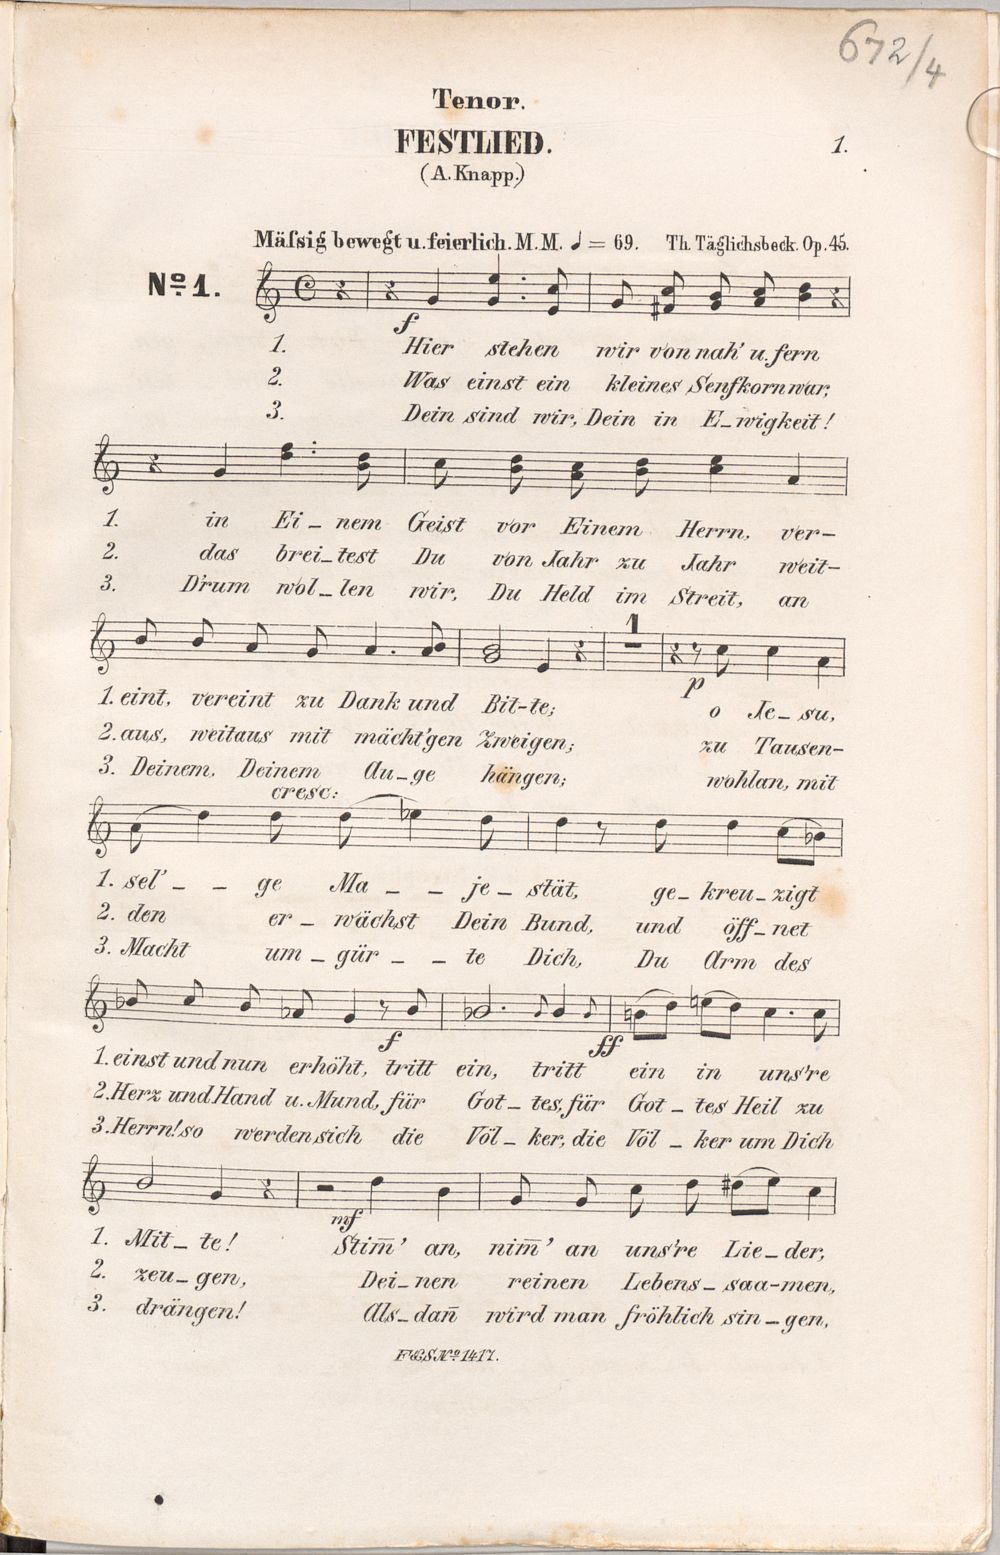 672/4
Tenor.
FESTLIED. 1.
(A. Knapp.)
Mäſsig bewegt u. feierlich. M.M. ♩ = 69. Th. Täglichsbeck. Op. 45.
No. 1.
f
1. Hier stehen wir von nah' u. fern
2. Was einst ein kleines Senfkorn war,
3. Dein sind wir, Dein in E_wigkeit!
1. in Ei_nem Geist vor Einem Herrn, ver-
2. das brei_test Du von Jahr zu Jahr weit-
3. D'rum wol_len wir, Du Held im Streit, an
1
p
1. eint, vereint zu Dank und Bit-te; o Je_su,
2. aus, weitaus mit mächt'gen Zweigen; zu Tausen-
3. Deinem, Deinem Au_ge hängen; wohlan, mit
cresc:
1. sel' _ _ ge Ma _ _ je_stät, ge_kreu_zigt
2. den er_wächst Dein Bund, und öff_net
3. Macht um_gür _ _ te Dich, Du Arm des
f ff
1. einst und nun erhöht, tritt ein, tritt ein in uns're
2. Herz und Hand u. Mund, für Got_tes, für Got_tes Heil zu
3. Herrn! so werden sich die Völ_ker, die Völ_ker um Dich
mf
1. Mit_te! Stim̄' an, nim̄' an uns're Lie_der,
2. zeu_gen, Dei_nen reinen Lebens_saa-men,
3. drängen! Als_dan̄ wird man fröhlich sin_gen,
F&S No. 1417.